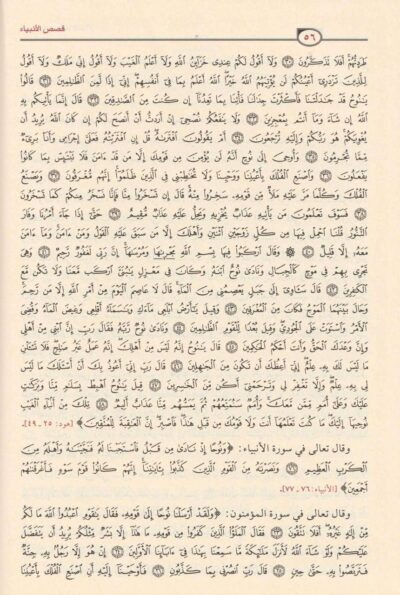 ٥٦
قصص الأنبياء
طَرَدتُّهُمْ أَفَلَا تَذَكَّرُونَ ﴿٣٠﴾ وَلَا أَقُولُ لَكُمْ عِندِى خَزَآئِنُ اللَّهِ وَلَا أَعْلَمُ الْغَيْبَ وَلَا أَقُولُ إِنِّى مَلَكٌ وَلَا أَقُولُ
لِلَّذِينَ تَزْدَرِىٓ أَعْيُنُكُمْ لَن يُؤْتِيَهُمُ اللَّهُ خَيْرًا اللَّهُ أَعْلَمُ بِمَا فِىٓ أَنفُسِهِمْ إِنِّىٓ إِذًا لَّمِنَ الظَّٰلِمِينَ ﴿٣١﴾ قَالُوا
يَٰنُوحُ قَدْ جَٰدَلْتَنَا فَأَكْثَرْتَ جِدَٰلَنَا فَأْتِنَا بِمَا تَعِدُنَآ إِن كُنتَ مِنَ الصَّٰدِقِينَ ﴿٣٢﴾ قَالَ إِنَّمَا يَأْتِيكُم بِهِ
اللَّهُ إِن شَآءَ وَمَآ أَنتُم بِمُعْجِزِينَ ﴿٣٣﴾ وَلَا يَنفَعُكُمْ نُصْحِىٓ إِنْ أَرَدتُّ أَنْ أَنصَحَ لَكُمْ إِن كَانَ اللَّهُ يُرِيدُ أَن
يُغْوِيَكُمْ هُوَ رَبُّكُمْ وَإِلَيْهِ تُرْجَعُونَ ﴿٣٤﴾ أَمْ يَقُولُونَ افْتَرَىٰهُ قُلْ إِنِ افْتَرَيْتُهُ فَعَلَىَّ إِجْرَامِى وَأَنَا۠ بَرِىٓءٌ
مِّمَّا تُجْرِمُونَ ﴿٣٥﴾ وَأُوحِىَ إِلَىٰ نُوحٍ أَنَّهُ لَن يُؤْمِنَ مِن قَوْمِكَ إِلَّا مَن قَدْ ءَامَنَ فَلَا تَبْتَئِسْ بِمَا كَانُوا
يَفْعَلُونَ ﴿٣٦﴾ وَاصْنَعِ الْفُلْكَ بِأَعْيُنِنَا وَوَحْيِنَا وَلَا تُخَٰطِبْنِى فِى الَّذِينَ ظَلَمُوٓا إِنَّهُم مُّغْرَقُونَ ﴿٣٧﴾ وَيَصْنَعُ
الْفُلْكَ وَكُلَّمَا مَرَّ عَلَيْهِ مَلَأٌ مِّن قَوْمِهِ سَخِرُوا مِنْهُ قَالَ إِن تَسْخَرُوا مِنَّا فَإِنَّا نَسْخَرُ مِنكُمْ كَمَا تَسْخَرُونَ
﴿٣٨﴾ فَسَوْفَ تَعْلَمُونَ مَن يَأْتِيهِ عَذَابٌ يُخْزِيهِ وَيَحِلُّ عَلَيْهِ عَذَابٌ مُّقِيمٌ ﴿٣٩﴾ حَتَّىٰٓ إِذَا جَآءَ أَمْرُنَا وَفَارَ
التَّنُّورُ قُلْنَا احْمِلْ فِيهَا مِن كُلٍّ زَوْجَيْنِ اثْنَيْنِ وَأَهْلَكَ إِلَّا مَن سَبَقَ عَلَيْهِ الْقَوْلُ وَمَنْ ءَامَنَ وَمَآ ءَامَنَ
مَعَهُ إِلَّا قَلِيلٌ ﴿٤٠﴾ وَقَالَ ارْكَبُوا فِيهَا بِسْمِ اللَّهِ مَجْر۪ىٰهَا وَمُرْسَىٰهَآ إِنَّ رَبِّى لَغَفُورٌ رَّحِيمٌ ﴿٤١﴾ وَهِىَ
تَجْرِى بِهِمْ فِى مَوْجٍ كَالْجِبَالِ وَنَادَىٰ نُوحٌ ابْنَهُ وَكَانَ فِى مَعْزِلٍ يَٰبُنَىَّ ارْكَب مَّعَنَا وَلَا تَكُن مَّعَ
الْكَٰفِرِينَ ﴿٤٢﴾ قَالَ سَـَٔاوِىٓ إِلَىٰ جَبَلٍ يَعْصِمُنِى مِنَ الْمَآءِ قَالَ لَا عَاصِمَ الْيَوْمَ مِنْ أَمْرِ اللَّهِ إِلَّا مَن رَّحِمَ
وَحَالَ بَيْنَهُمَا الْمَوْجُ فَكَانَ مِنَ الْمُغْرَقِينَ ﴿٤٣﴾ وَقِيلَ يَٰٓأَرْضُ ابْلَعِى مَآءَكِ وَيَٰسَمَآءُ أَقْلِعِى وَغِيضَ الْمَآءُ وَقُضِىَ
الْأَمْرُ وَاسْتَوَتْ عَلَى الْجُودِىِّ وَقِيلَ بُعْدًا لِّلْقَوْمِ الظَّٰلِمِينَ ﴿٤٤﴾ وَنَادَىٰ نُوحٌ رَّبَّهُ فَقَالَ رَبِّ إِنَّ ابْنِى مِنْ أَهْلِى
وَإِنَّ وَعْدَكَ الْحَقُّ وَأَنتَ أَحْكَمُ الْحَٰكِمِينَ ﴿٤٥﴾ قَالَ يَٰنُوحُ إِنَّهُ لَيْسَ مِنْ أَهْلِكَ إِنَّهُ عَمَلٌ غَيْرُ صَٰلِحٍ فَلَا تَسْـَٔلْنِ
مَا لَيْسَ لَكَ بِهِ عِلْمٌ إِنِّىٓ أَعِظُكَ أَن تَكُونَ مِنَ الْجَٰهِلِينَ ﴿٤٦﴾ قَالَ رَبِّ إِنِّىٓ أَعُوذُ بِكَ أَنْ أَسْـَٔلَكَ مَا لَيْسَ
لِى بِهِ عِلْمٌ وَإِلَّا تَغْفِرْ لِى وَتَرْحَمْنِىٓ أَكُن مِّنَ الْخَٰسِرِينَ ﴿٤٧﴾ قِيلَ يَٰنُوحُ اهْبِطْ بِسَلَٰمٍ مِّنَّا وَبَرَكَٰتٍ
عَلَيْكَ وَعَلَىٰٓ أُمَمٍ مِّمَّن مَّعَكَ وَأُمَمٌ سَنُمَتِّعُهُمْ ثُمَّ يَمَسُّهُم مِّنَّا عَذَابٌ أَلِيمٌ ﴿٤٨﴾ تِلْكَ مِنْ أَنۢبَآءِ الْغَيْبِ
نُوحِيهَآ إِلَيْكَ مَا كُنتَ تَعْلَمُهَآ أَنتَ وَلَا قَوْمُكَ مِن قَبْلِ هَٰذَا فَاصْبِرْ إِنَّ الْعَٰقِبَةَ لِلْمُتَّقِينَ﴾ [هود: ٢٥ ـ ٤٩].
وقال تعالى في سورة الأنبياء: ﴿وَنُوحًا إِذْ نَادَىٰ مِن قَبْلُ فَاسْتَجَبْنَا لَهُ فَنَجَّيْنَٰهُ وَأَهْلَهُ مِنَ
الْكَرْبِ الْعَظِيمِ ﴿٧٦﴾ وَنَصَرْنَٰهُ مِنَ الْقَوْمِ الَّذِينَ كَذَّبُوا بِـَٔايَٰتِنَآ إِنَّهُمْ كَانُوا قَوْمَ سَوْءٍ فَأَغْرَقْنَٰهُمْ
أَجْمَعِينَ﴾ [الأنبياء: ٧٦، ٧٧].
وقال تعالى في سورة المؤمنون: ﴿وَلَقَدْ أَرْسَلْنَا نُوحًا إِلَىٰ قَوْمِهِ فَقَالَ يَٰقَوْمِ اعْبُدُوا اللَّهَ مَا لَكُم
مِّنْ إِلَٰهٍ غَيْرُهُ أَفَلَا تَتَّقُونَ ﴿٢٣﴾ فَقَالَ الْمَلَؤُا الَّذِينَ كَفَرُوا مِن قَوْمِهِ مَا هَٰذَآ إِلَّا بَشَرٌ مِّثْلُكُمْ يُرِيدُ أَن يَتَفَضَّلَ
عَلَيْكُمْ وَلَوْ شَآءَ اللَّهُ لَأَنزَلَ مَلَٰٓئِكَةً مَّا سَمِعْنَا بِهَٰذَا فِىٓ ءَابَآئِنَا الْأَوَّلِينَ ﴿٢٤﴾ إِنْ هُوَ إِلَّا رَجُلٌ بِهِ جِنَّةٌ
فَتَرَبَّصُوا بِهِ حَتَّىٰ حِينٍ ﴿٢٥﴾ قَالَ رَبِّ انصُرْنِى بِمَا كَذَّبُونِ ﴿٢٦﴾ فَأَوْحَيْنَآ إِلَيْهِ أَنِ اصْنَعِ الْفُلْكَ بِأَعْيُنِنَا